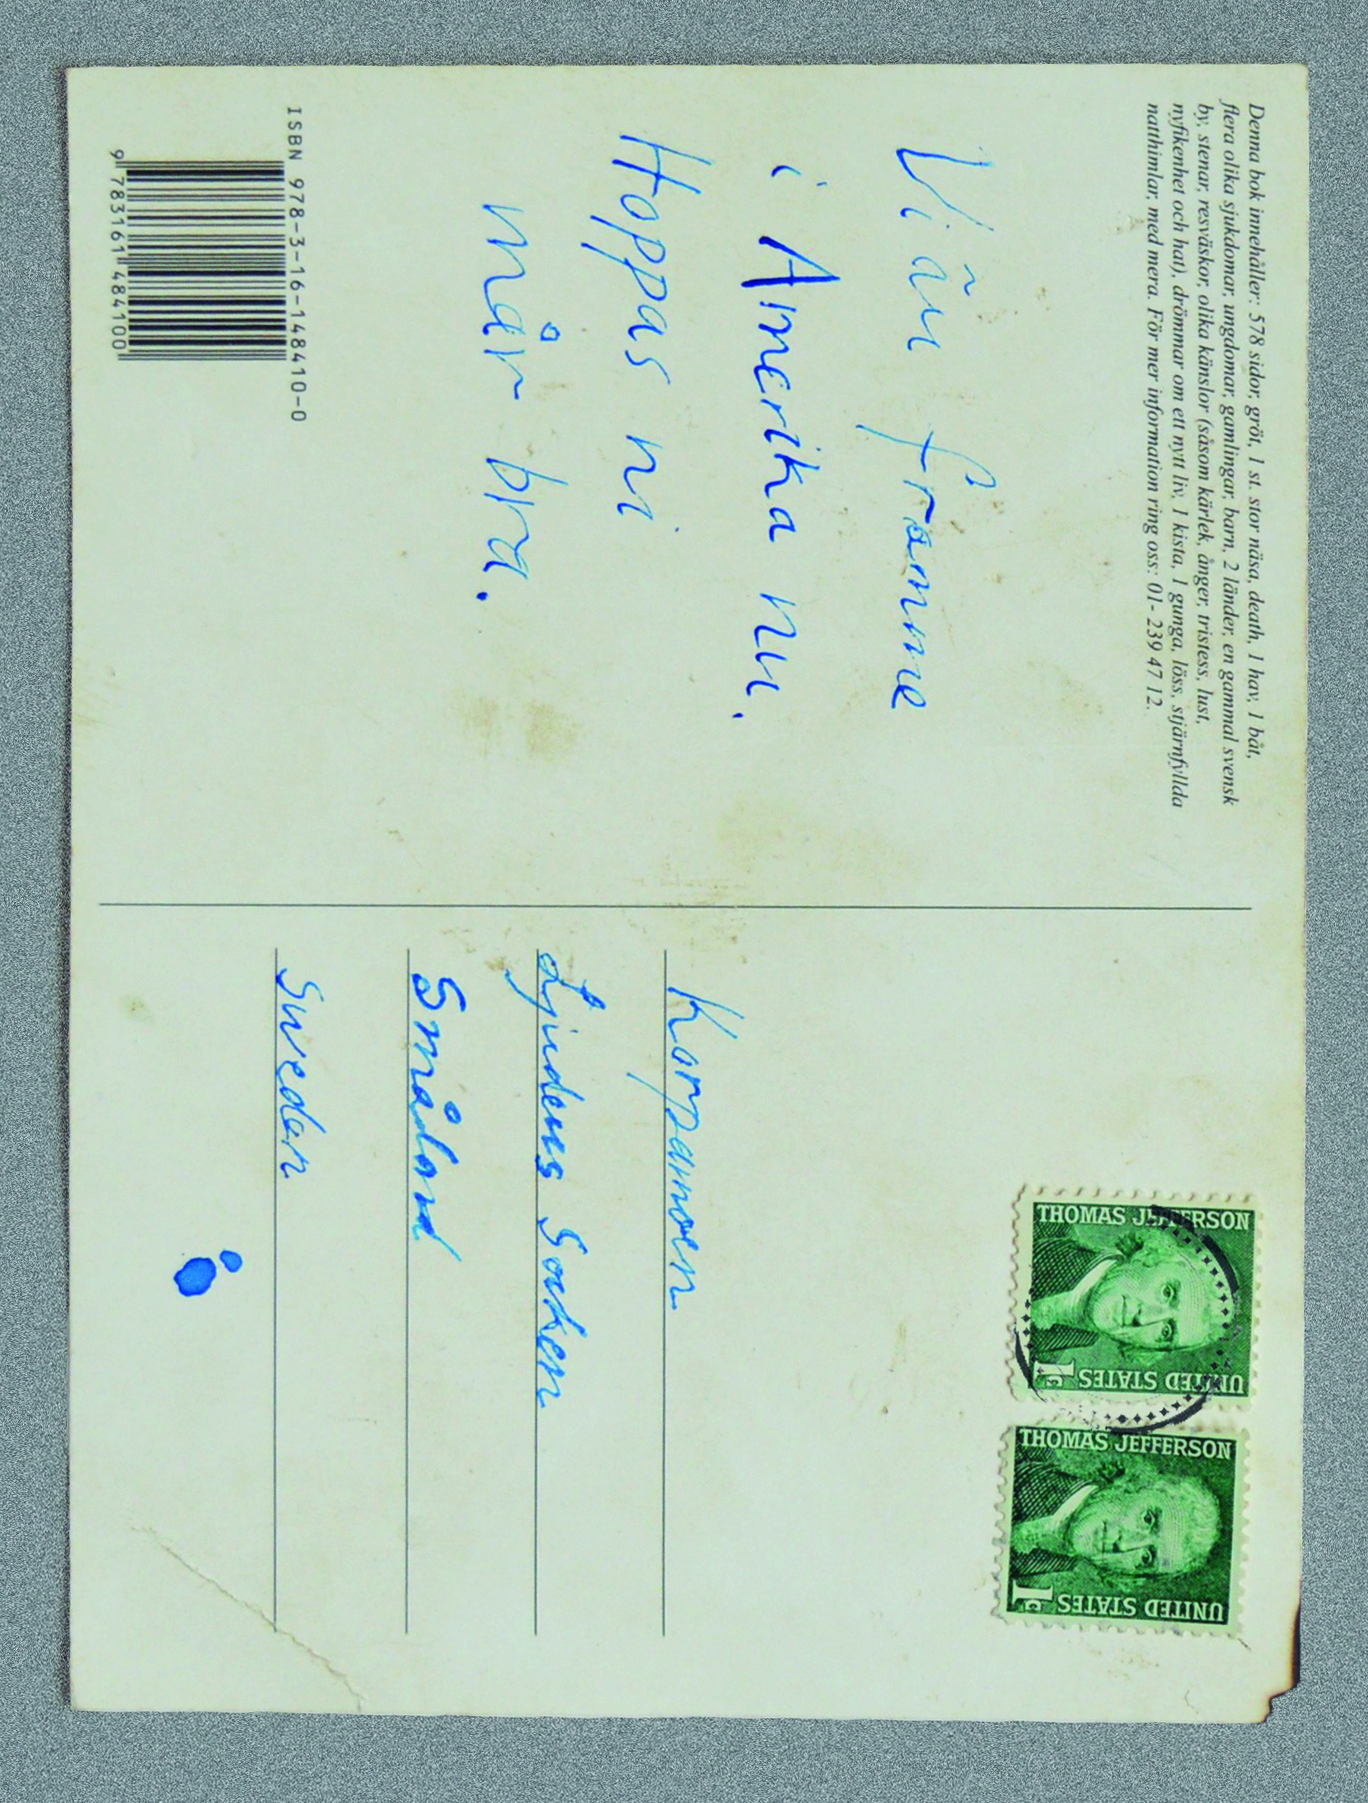 Denna bok innehåller: 578 sidor, gröt, 1 st. stor näsa, death, 1 hav, 1 båt,
flera olika sjukdomar, ungdomar, gamlingar, barn, 2 länder, en gammal svensk
by, stenar, resväskor, olika känslor (såsom kärlek, ånger, tristess, lust,
nyfikenhet och hat), drömmar om ett nytt liv, 1 kista, 1 gunga, löss, stjärnfyllda
natthimlar, med mera. För mer information ring oss: 01- 239 47 12.
Vi är framme
i Amerika nu.
Hoppas ni
mår bra.
ISBN 978-3-16-148410-0
9 783161 484100
THOMAS JEFFERSON
1c UNITED STATES
THOMAS JEFFERSON
1c UNITED STATES
Korpamoen
Ljuders Socken
Småland
Sweden